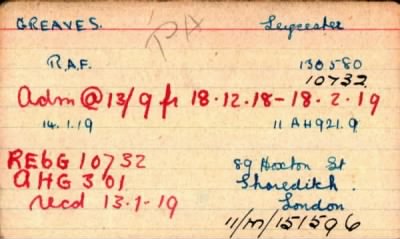 GREAVES. PA Leycester
R.A.F. 130580
10732
Adm @ 13/9 fr 18.12.18 - 18.2.19
14.1.19 11 AH921.9
REbG 10732 89 Hoxton St
AHG 301 Shoreditch.
recd 13-1-19 London
11/M/151596